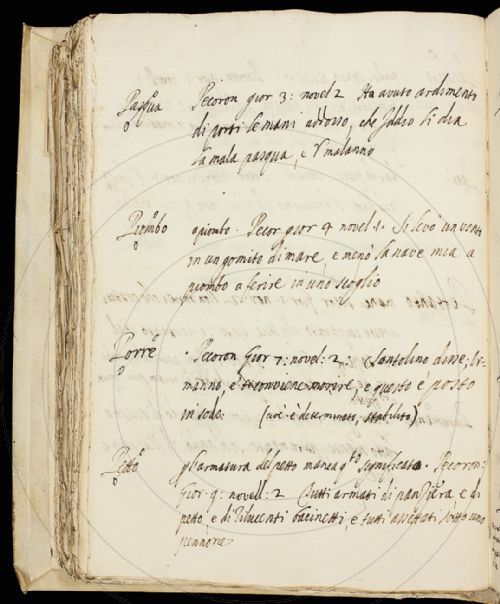 Pasqua Pecoron gior 3: novel 2 Ha avuto ardimento
di porti le mani addosso, che Iddio li dia
la mala pasqua, e 'l malanno
Piombo apiombo. Pecor gior 4 novel. 1. Si levò un vento
in un gomito di mare e menò la nave mia a
piombo a ferire in uno scoglio
Porre. Pecoron Gior 7: novel: 2: Santolino disse,
manno, e ti conviene morire, e questo è posto
in sodo: (cioè è determinato, stabilito)
Petto p l'armatura del petto manca qto significato. Pecoron:
Gior. 9: novell: 2 Tutti armati di panziera e di
petto e di rilucenti bacinetti, e tutti assettati sotto uno
pennone